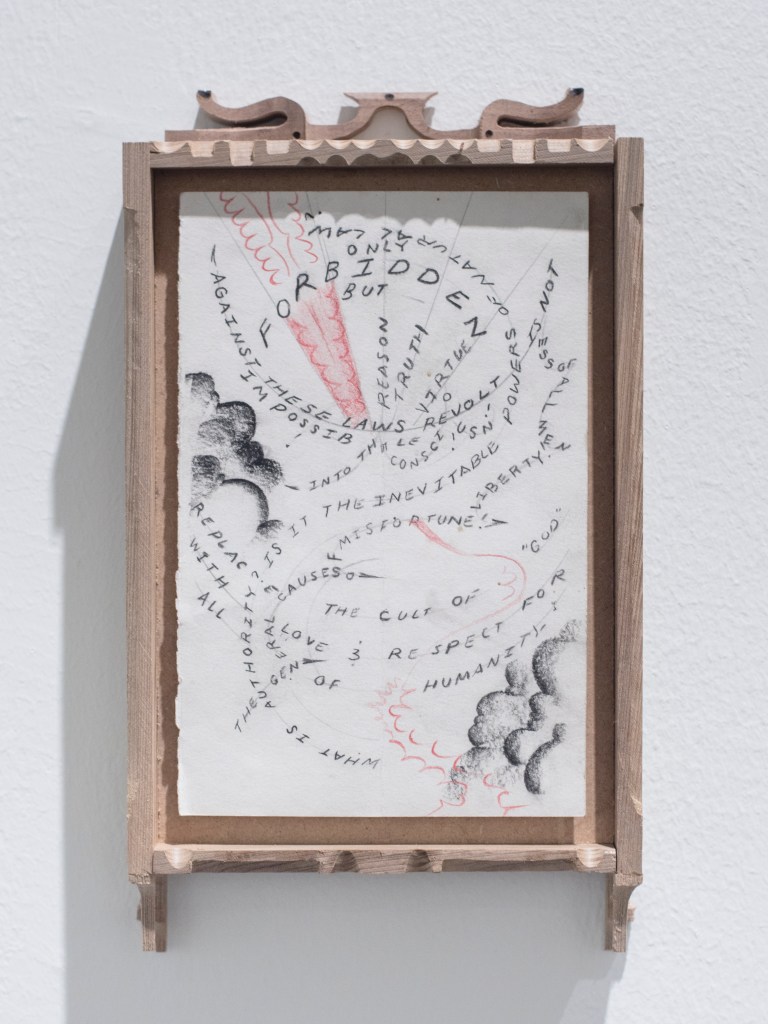 WHAT IS
AUTHORITY?
IS IT THE INEVITABLE
POWERS
OF NATURAL LAW?
AGAINST THESE LAWS REVOLT
IS NOT
ONLY
FORBIDDEN
BUT
IMPOSSIBLE
!
REASON
TRUTH
VIRTUE
INTO THE
CONSCIOUSN-
ESS OF ALL MEN
LIBERTY!
THE
A GENERAL
CAUSES OF MISFORTUNE!
REPLACE
THE CULT OF "GOD"
WITH
LOVE & RESPECT FOR
ALL
OF HUMANITY!